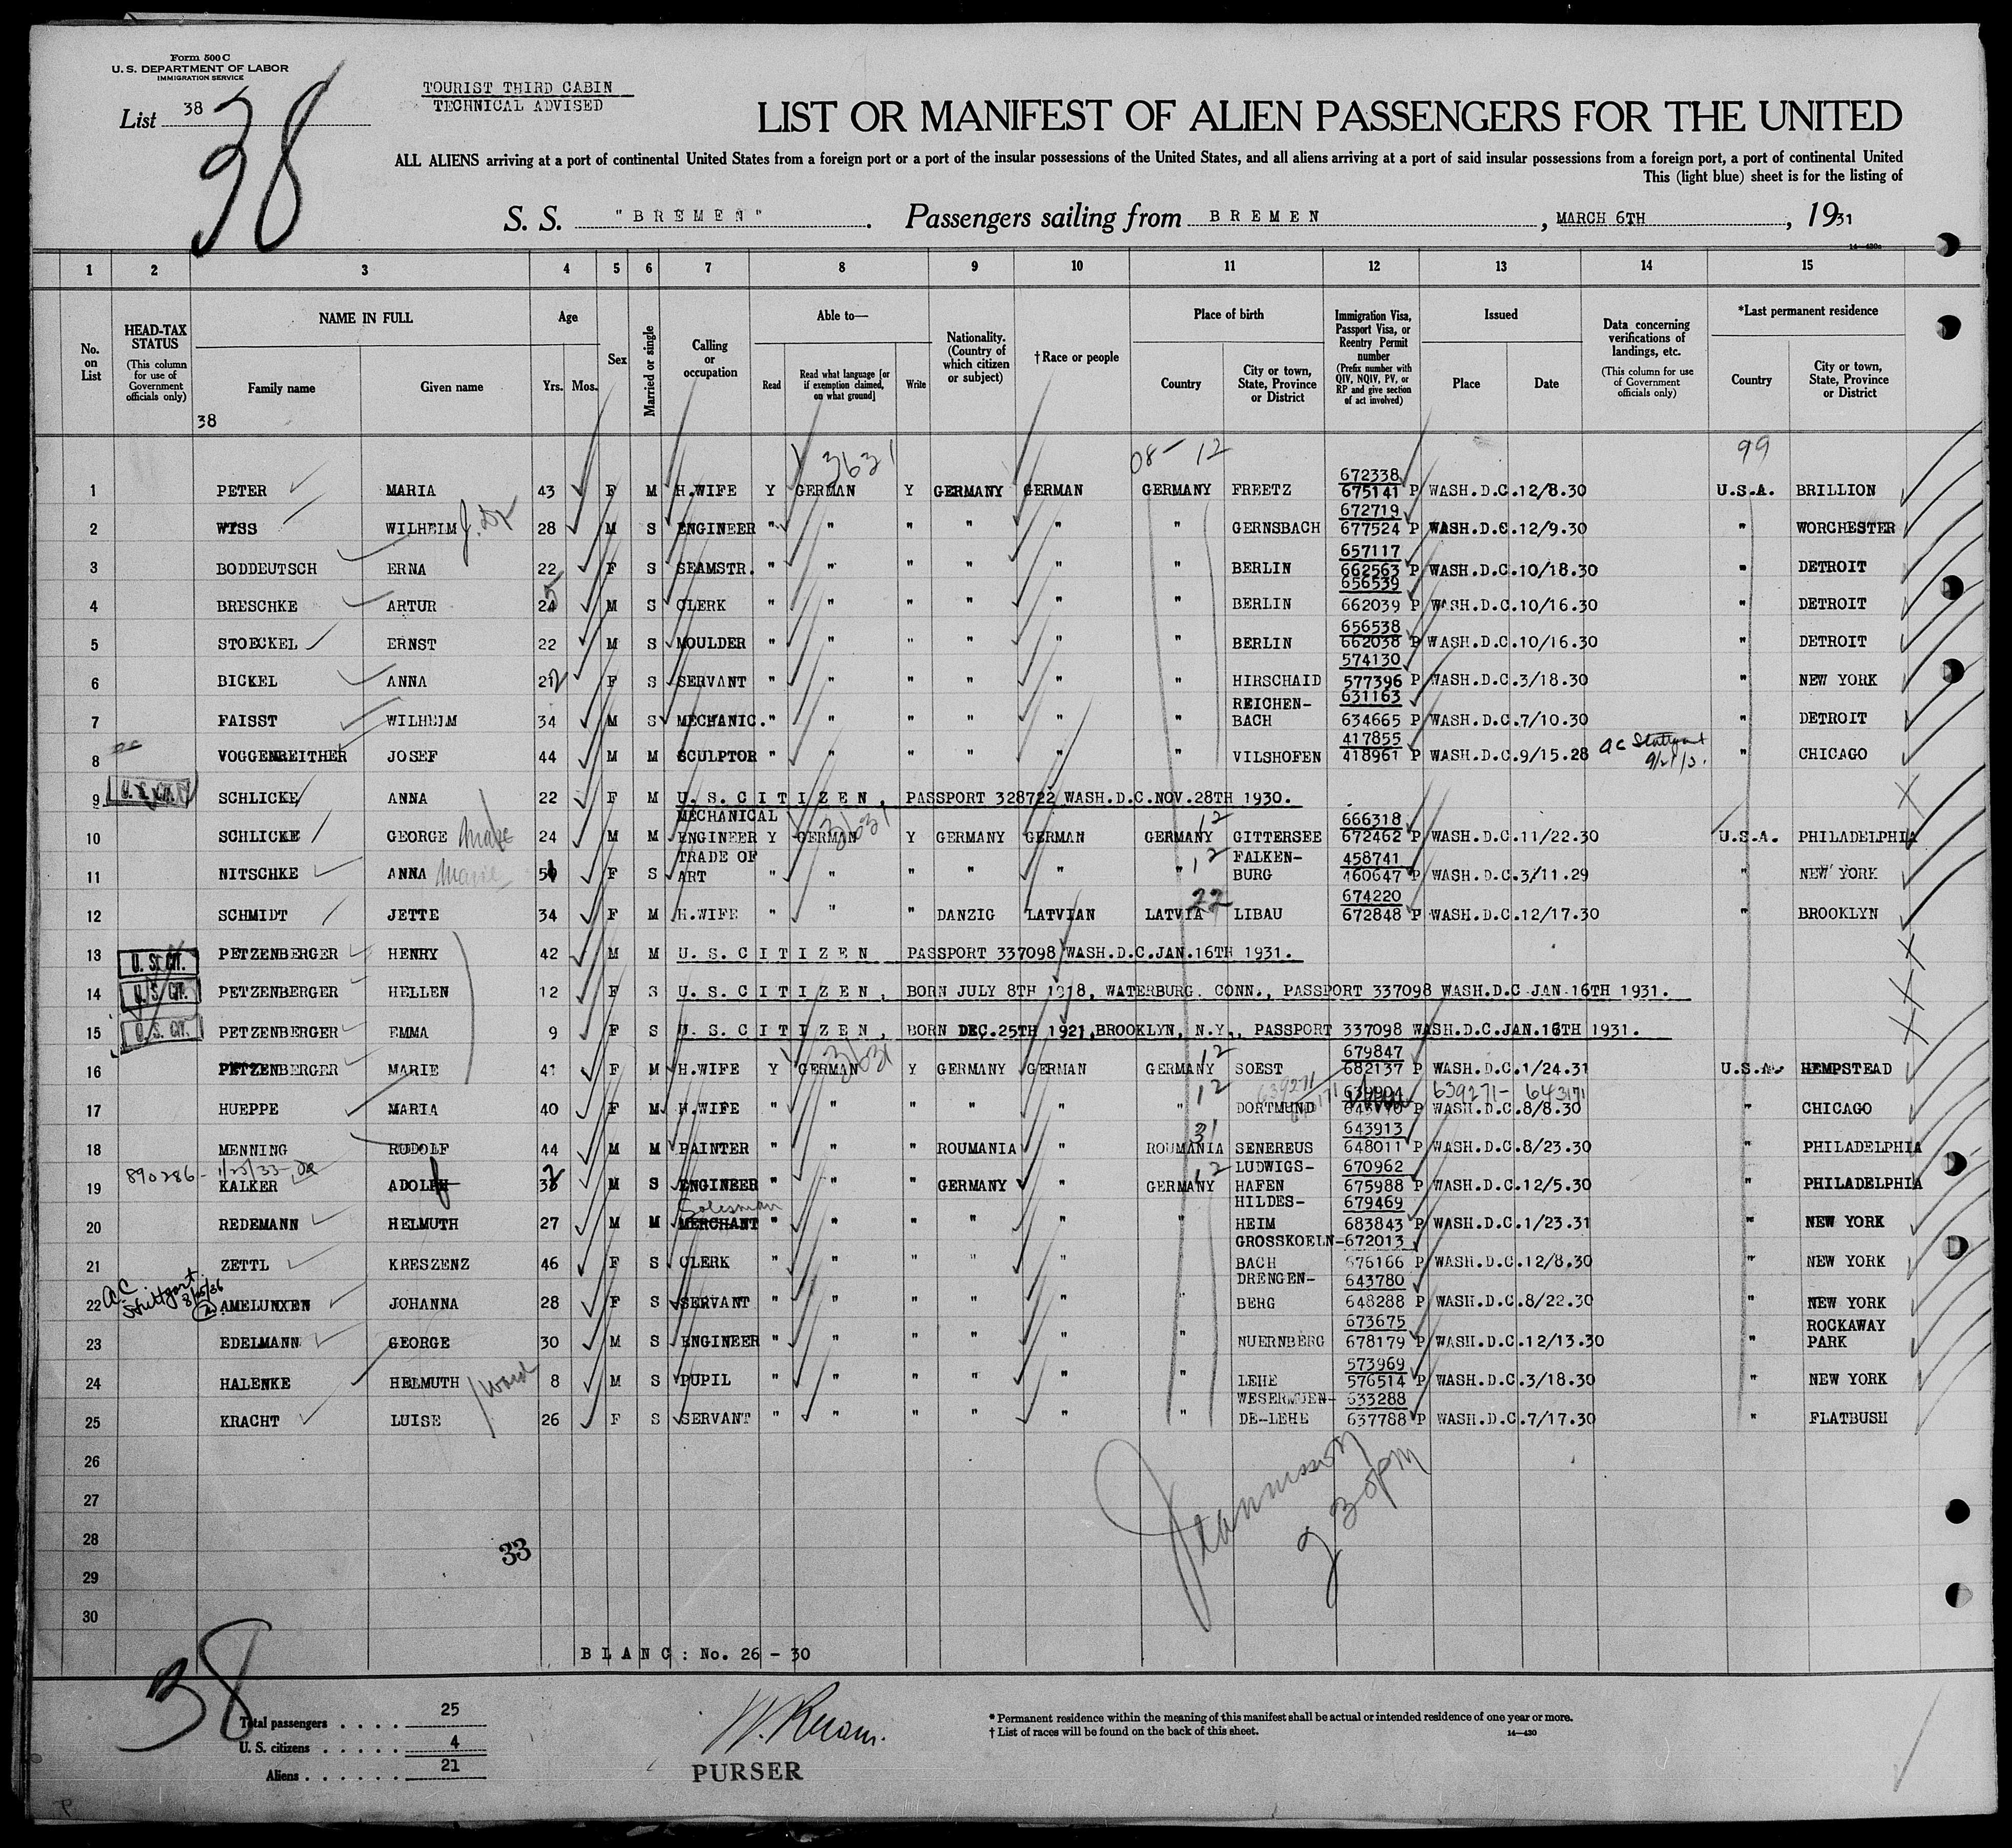 Form 500 C
U. S. DEPARTMENT OF LABOR
IMMIGRATION SERVICE
List 38
38
TOURIST THIRD CABIN
TECHNICAL ADVISED
LIST OR MANIFEST OF ALIEN PASSENGERS FOR THE UNITED
ALL ALIENS arriving at a port of continental United States from a foreign port or a port of the insular possessions of the United States, and all aliens arriving at a port of said insular possessions from a foreign port, a port of continental United
This (light blue) sheet is for the listing of
S. S. "BREMEN". Passengers sailing from BREMEN, MARCH 6TH, 1931
14—430a
1 2 3 4 5 6 7 8 9 10 11 12 13 14 15
No. on List
HEAD-TAX STATUS (This column for use of Government officials only)
NAME IN FULL Family name Given name
Age Yrs. Mos.
Sex
Married or single
Calling or occupation
Able to— Read Read what language [or if exemption claimed, on what ground] Write
Nationality. (Country of which citizen or subject)
†Race or people
Place of birth Country City or town, State, Province or District
Immigration Visa, Passport Visa, or Reentry Permit number (Prefix number with QIV, NQIV, PV, or RP and give section of act involved)
Issued Place Date
Data concerning verifications of landings, etc. (This column for use of Government officials only)
*Last permanent residence Country City or town, State, Province or District
38
3631 08-12 99
1 PETER MARIA 43 F M H.WIFE Y GERMAN Y GERMANY GERMAN GERMANY FREETZ 672338 675141 P WASH.D.C.12/8.30 U.S.A. BRILLION
2 WISS WILHELM 28 M S ENGINEER " " " " " " GERNSBACH 672719 677524 P WASH.D.C.12/9.30 " WORCHESTER
3 BODDEUTSCH ERNA 22 F S SEAMSTR. " " " " " " BERLIN 657117 662563 P WASH.D.C.10/18.30 " DETROIT
4 BRESCHKE ARTUR 24 5 M S CLERK " " " " " " BERLIN 656539 662039 P WASH.D.C.10/16.30 " DETROIT
5 STOECKEL ERNST 22 M S MOULDER " " " " " " BERLIN 656538 662038 P WASH.D.C.10/16.30 " DETROIT
6 BICKEL ANNA 22 F S SERVANT " " " " " " HIRSCHAID 574130 577396 P WASH.D.C.3/18.30 " NEW YORK
7 FAISST WILHELM 34 M S MECHANIC. " " " " " " REICHEN-BACH 631163 634665 P WASH.D.C.7/10.30 " DETROIT
8 VOGGENREITHER JOSEF 44 M M SCULPTOR " " " " " " VILSHOFEN 417855 418961 P WASH.D.C.9/15.28 ac Stuttgart " CHICAGO
9 U.S. CIT. SCHLICKE ANNA 22 F M U.S.CITIZEN, PASSPORT 328722 WASH.D.C.NOV.28TH 1930.
10 SCHLICKE GEORGE 24 M M MECHANICAL ENGINEER Y GERMAN 3631 Y GERMANY GERMAN GERMANY 12 GITTERSEE 666318 672462 P WASH.D.C.11/22.30 U.S.A. PHILADELPHIA
11 NITSCHKE ANNA Marie 50 F S TRADE OF ART " " " " " " 12 FALKEN-BURG 458741 460647 P WASH.D.C.3/11.29 " NEW YORK
12 SCHMIDT JETTE 34 F M H.WIFE " " " DANZIG LATVIAN LATVIA 22 LIBAU 674220 672848 P WASH.D.C.12/17.30 " BROOKLYN
13 U.S. CIT. PETZENBERGER HENRY 42 M M U.S.CITIZEN PASSPORT 337098 WASH.D.C.JAN.16TH 1931.
14 U.S. CIT. PETZENBERGER HELLEN 12 F S U.S.CITIZEN, BORN JULY 8TH 1918, WATERBURG. CONN., PASSPORT 337098 WASH.D.C JAN.16TH 1931.
15 U.S. CIT. PETZENBERGER EMMA 9 F S U.S.CITIZEN, BORN DEC.25TH 1921,BROOKLYN, N.Y., PASSPORT 337098 WASH.D.C.JAN.16TH 1931.
16 PETZENBERGER MARIE 41 F M H.WIFE Y GERMAN 3631 Y GERMANY GERMAN GERMANY 12 SOEST 679847 682137 P WASH.D.C.1/24.31 U.S.A. HEMPSTEAD
17 HUEPPE MARIA 40 F M H.WIFE " " " " " " 12 DORTMUND 639904 P 639271- 643171 WASH.D.C.8/8.30 " CHICAGO
18 MENNING RUDOLF 44 M M PAINTER " " " ROUMANIA " ROUMANIA 31 SENEREUS 643913 648011 P WASH.D.C.8/23.30 " PHILADELPHIA
19 890286- 1/23/33 KALKER ADOLPH f 33 2 M S ENGINEER " " " GERMANY " GERMANY 12 LUDWIGS-HAFEN 670962 675988 P WASH.D.C.12/5.30 " PHILADELPHIA
20 REDEMANN HELMUTH 27 M M Salesman MERCHANT " " " " " " HILDES-HEIM 679469 683843 P WASH.D.C.1/23.31 " NEW YORK
21 ZETTL KRESZENZ 46 F S CLERK " " " " " " GROSSKOELN-BACH 672013 676166 P WASH.D.C.12/8.30 " NEW YORK
22 ac Stuttgart 8/25/36 AMELUNXEN JOHANNA 28 F S SERVANT " " " " " " DRENGEN-BERG 643780 648288 P WASH.D.C.8/22.30 " NEW YORK
23 EDELMANN GEORGE 30 M S ENGINEER " " " " " " NUERNBERG 673675 678179 P WASH.D.C.12/13.30 " ROCKAWAY PARK
24 HALENKE HELMUTH 8 M S PUPIL " " " " " " LEHE 573969 576514 P WASH.D.C.3/18.30 " NEW YORK
25 KRACHT LUISE 26 F S SERVANT " " " " " " WESERMUEN-DE-LEHE 633288 637788 P WASH.D.C.7/17.30 " FLATBUSH
26
27
28
29
30
33
230pm
BLANC: No. 26 - 30
38
Total passengers . . . . 25
U. S. citizens . . . . . 4
Aliens . . . . . . 21
PURSER
* Permanent residence within the meaning of this manifest shall be actual or intended residence of one year or more.
† List of races will be found on the back of this sheet.
14—430